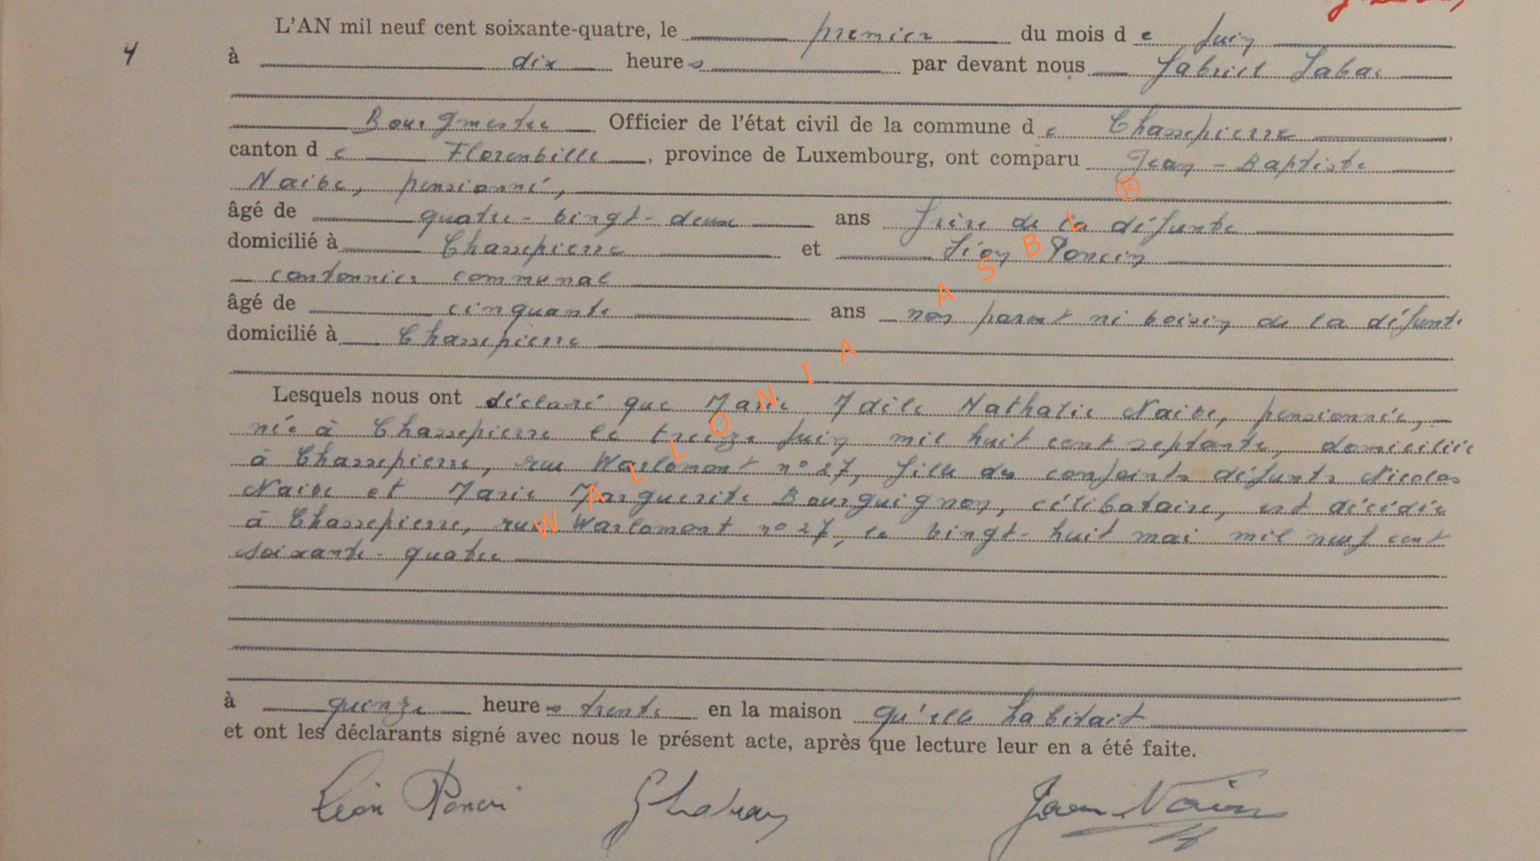 L'AN mil neuf cent soixante-quatre, le premier du mois de Juin
4
à dix heures par devant nous Gabriel
Bourgmestre Officier de l'état civil de la commune de Chassepierre,
canton de Florenville, province de Luxembourg, ont comparu Jean-Baptiste
Naise, pensionné,
âgé de quatre-vingt-deux ans frère de la défunte
domicilié à Chassepierre et Léon Poncin
cantonnier communal
âgé de cinquante ans non parent ni voisin de la défunte
domicilié à Chassepierre
Lesquels nous ont déclaré que Marie Adèle Nathalie Naise, pensionnée,
née à Chassepierre le treize Juin mil huit cent septante, domiciliée
à Chassepierre, rue Warlomont n° 27, fille des conjoints défunts Nicolas
Naise et Marie Marguerite Bourguignon, célibataire, est décédée
à Chassepierre, rue Warlomont n° 27, le vingt-huit mai mil neuf cent
soixante-quatre
à quinze heures trente en la maison qu'elle habitait
et ont les déclarants signé avec nous le présent acte, après que lecture leur en a été faite.
Léon Poncin Jean
WALLONIA ASBL ®